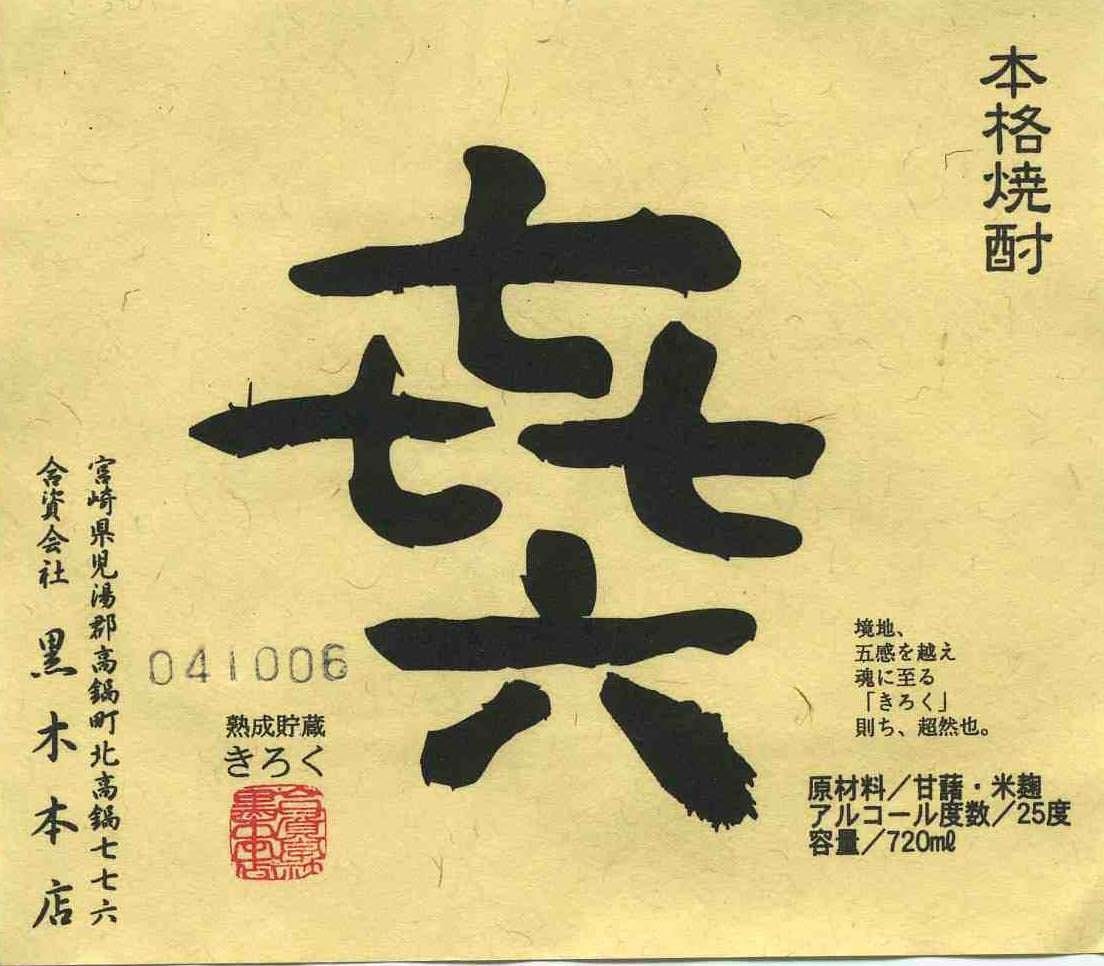 本格焼酎
㐂六
境地、
五感を越え
魂に至る
「きろく」
則ち、超然也。
原材料／甘藷・米麹
アルコール度数／25度
容量／720ml
041006
熟成貯蔵
きろく
宮崎県児湯郡高鍋町北高鍋七七六
合資会社 黒木本店